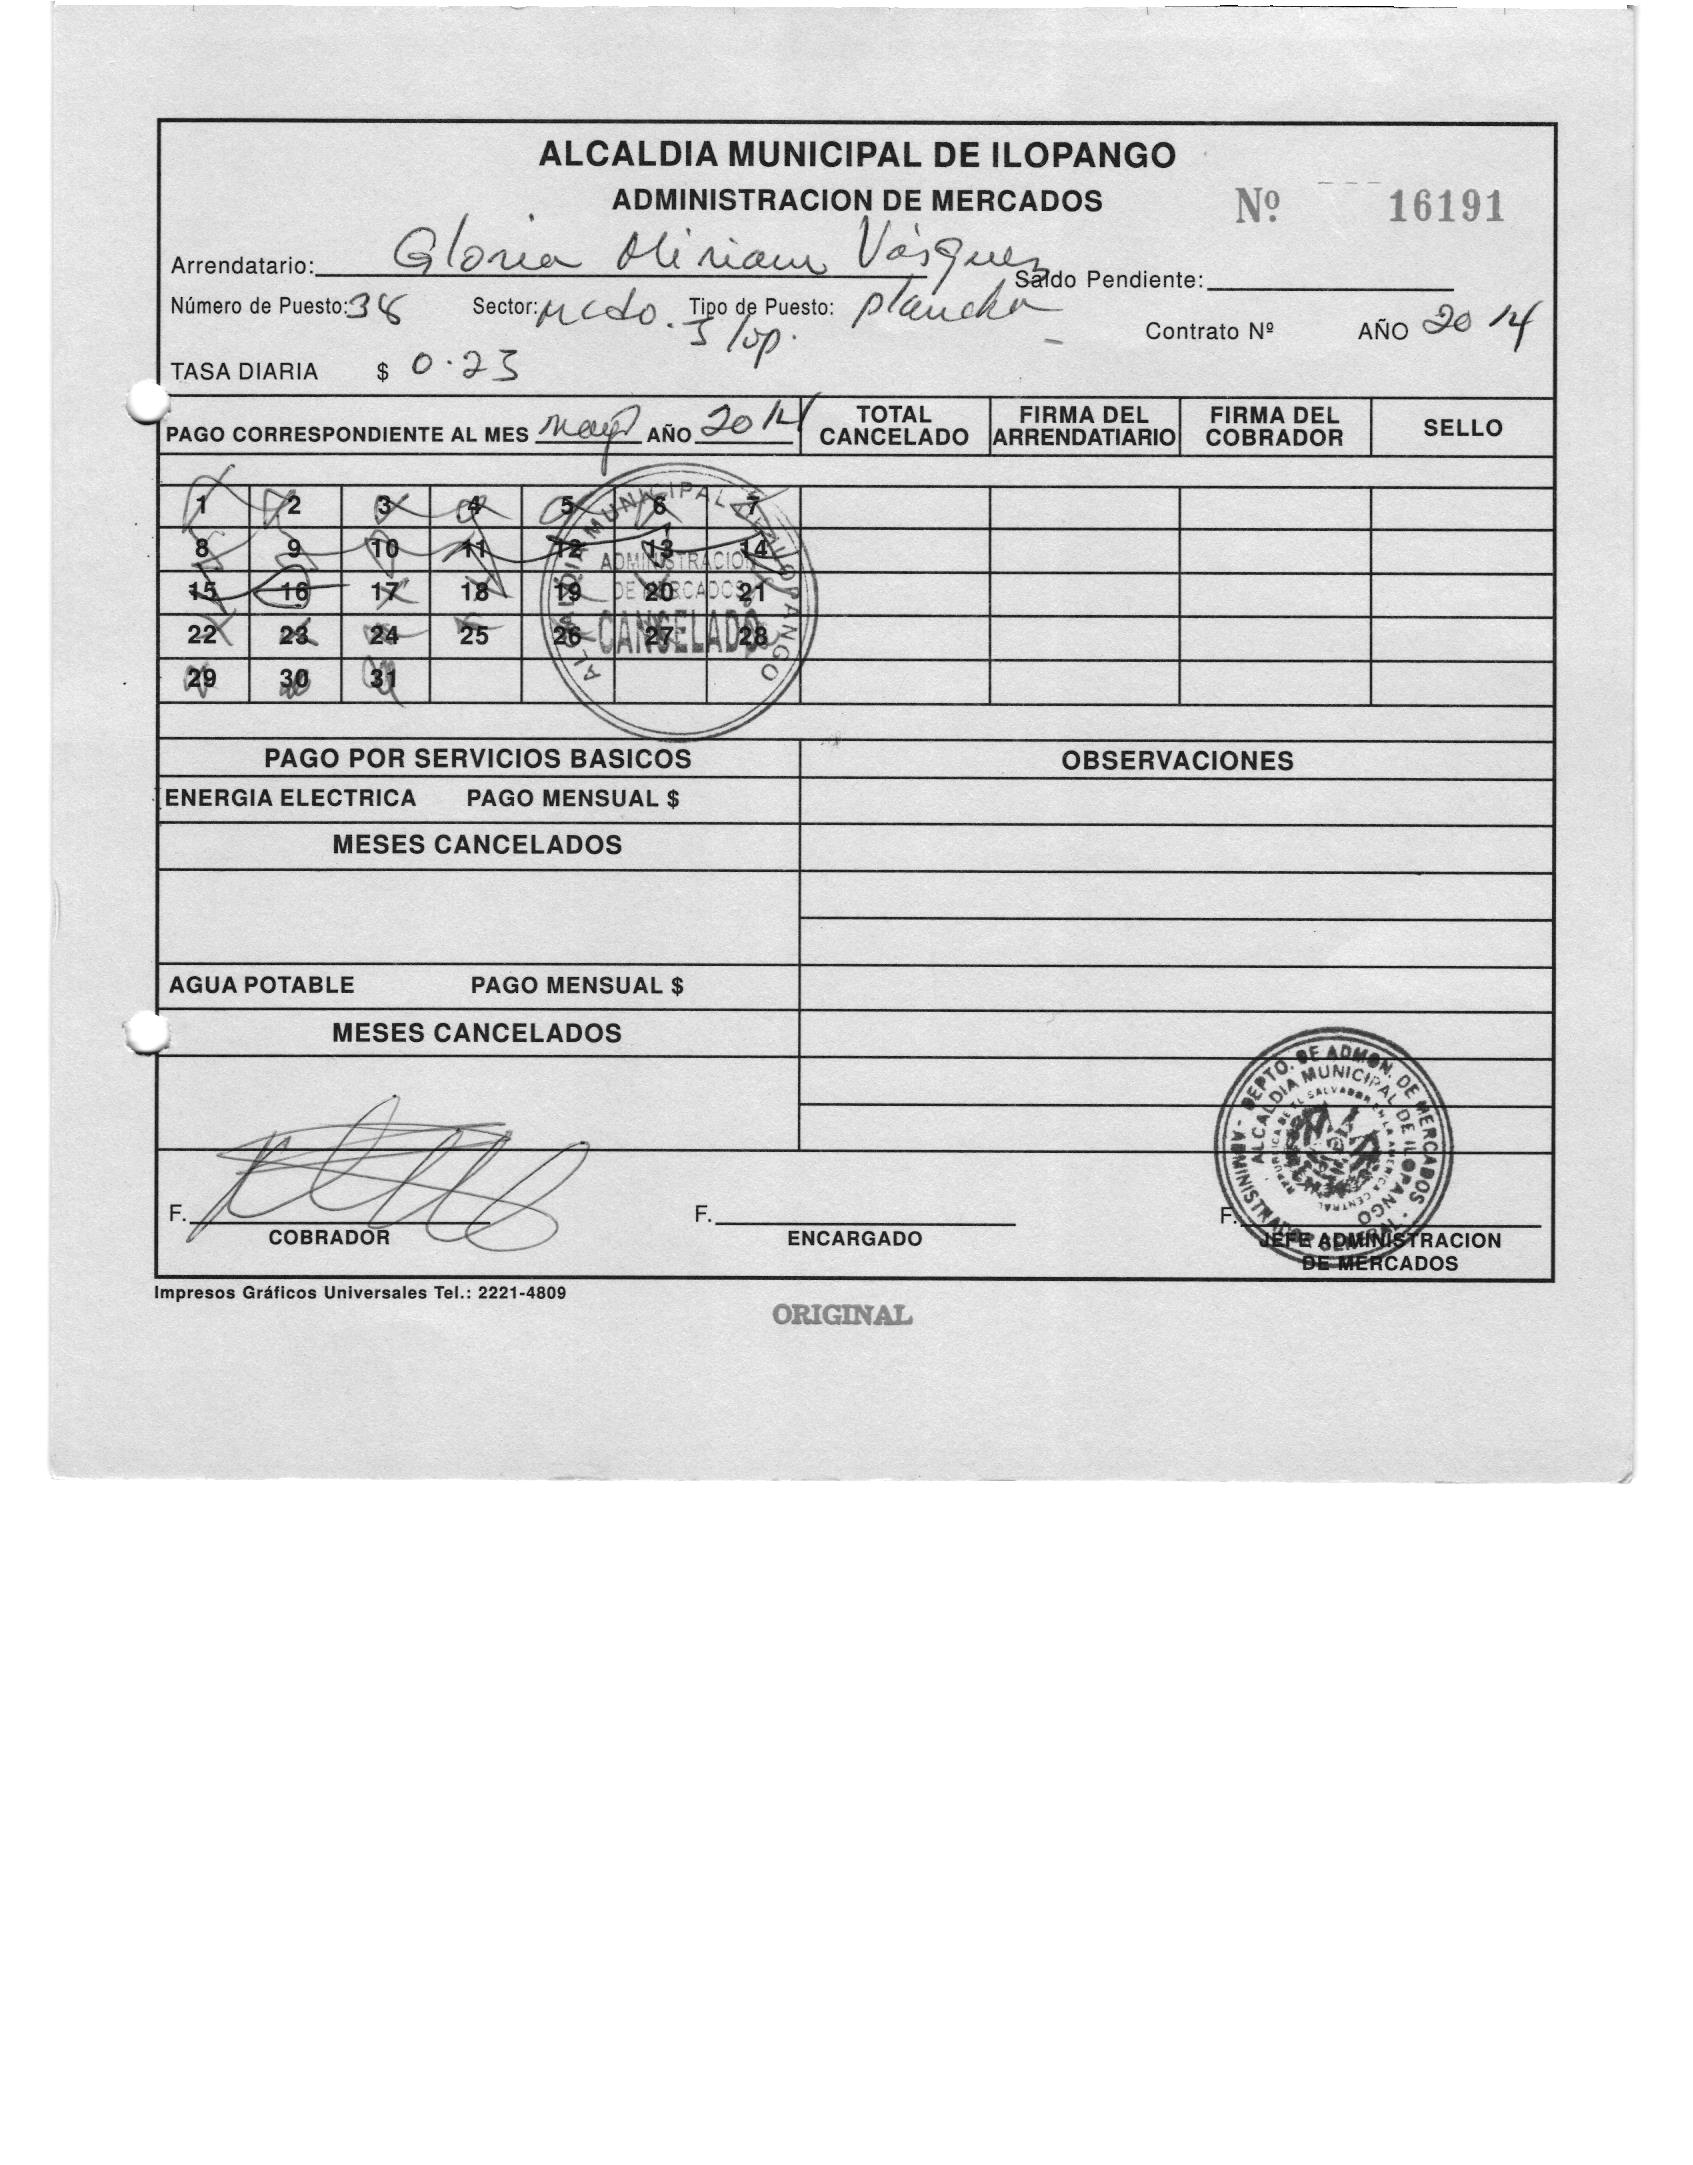 ALCALDIA MUNICIPAL DE ILOPANGO
ADMINISTRACION DE MERCADOS
Nº 16191
Arrendatario: Gloria Miriam Vásquez Saldo Pendiente:
Número de Puesto: 38 Sector: Mcdo. Tipo de Puesto: plancha
Contrato Nº AÑO 2014
TASA DIARIA $ 0.23
PAGO CORRESPONDIENTE AL MES mayo AÑO 2014 TOTAL CANCELADO FIRMA DEL ARRENDATIARIO FIRMA DEL COBRADOR SELLO
1 2 3 4 5 6 7
8 9 10 11 12 13 14
15 16 17 18 19 20 21
22 23 24 25 26 27 28
29 30 31
ALCALDIA MUNICIPAL ILOPANGO
ADMINISTRACION
DE MERCADOS
CANCELADO
PAGO POR SERVICIOS BASICOS OBSERVACIONES
ENERGIA ELECTRICA PAGO MENSUAL $
MESES CANCELADOS
AGUA POTABLE PAGO MENSUAL $
MESES CANCELADOS
DEPTO. DE ADMON. DE MERCADOS
ALCALDIA MUNICIPAL DE ILOPANGO
F. F. F.
COBRADOR ENCARGADO JEFE ADMINISTRACION
DE MERCADOS
Impresos Gráficos Universales Tel.: 2221-4809
ORIGINAL